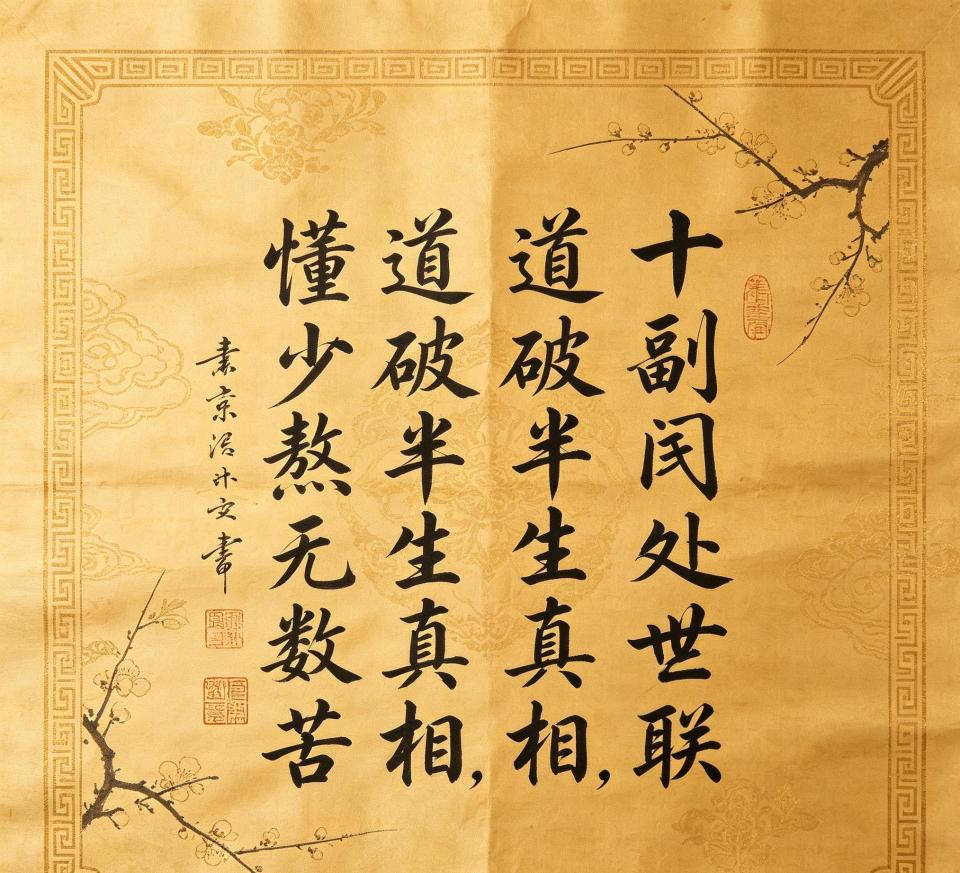 十副处世联
道破半生真相,
道破半生真相,
懂少熬无数苦